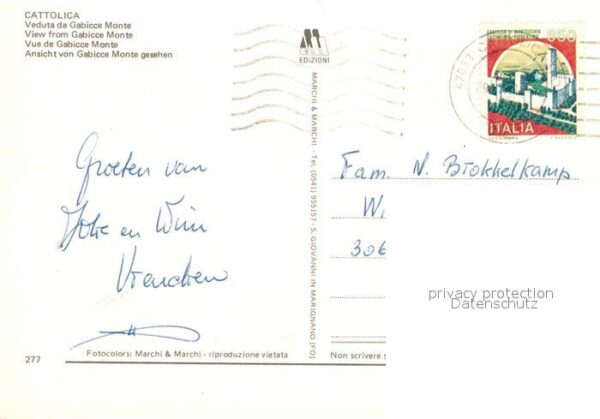 CATTOLICA
Veduta da Gabicce Monte
View from Gabicce Monte
Vue de Gabicce Monte
Ansicht von Gabicce Monte gesehen
EDIZIONI
650
ITALIA
47033 CATTOLICA
MARCHI & MARCHI - Tel. (0541) 955157 - S. GIOVANNI IN MARIGNANO (FO)
Groeten van
en Wim
Fam. N. Brokhelkamp
W
306
privacy protection
Datenschutz
277
Fotocolors: Marchi & Marchi - riproduzione vietata
Non scrivere s